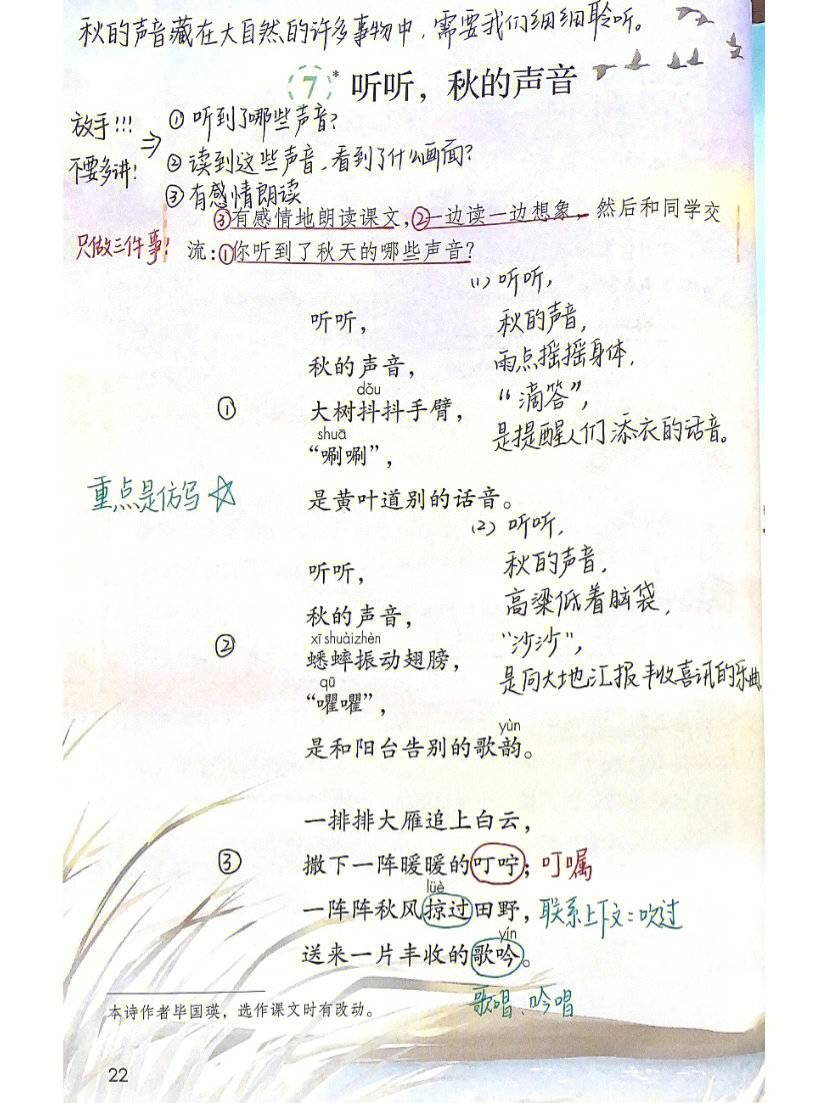 秋的声音藏在大自然的许多事物中，需要我们细细聆听。
7* 听听，秋的声音
放手!!!
不要多讲!
⇒
①听到了哪些声音？
②读到这些声音，看到了什么画面？
③有感情朗读
只做三件事!
③有感情地朗读课文，②一边读一边想象，然后和同学交
流：①你听到了秋天的哪些声音？
①
听听，
秋的声音，
dǒu
大树抖抖手臂，
shuā
“唰唰”，
是黄叶道别的话音。
(1) 听听，
秋的声音，
雨点摇摇身体，
“滴答”，
是提醒人们添衣的话音。
重点是仿写☆
②
听听，
秋的声音，
xī shuài zhèn
蟋蟀振动翅膀，
qū
“㘗㘗”，
yùn
是和阳台告别的歌韵。
(2) 听听，
秋的声音，
高粱低着脑袋，
“沙沙”，
是向大地汇报丰收喜讯的乐曲。
③
一排排大雁追上白云，
撒下一阵暖暖的叮咛；叮嘱
lüè
一阵阵秋风掠过田野，联系上下文：吹过
yín
送来一片丰收的歌吟。
歌唱、吟唱
本诗作者毕国瑛，选作课文时有改动。
22